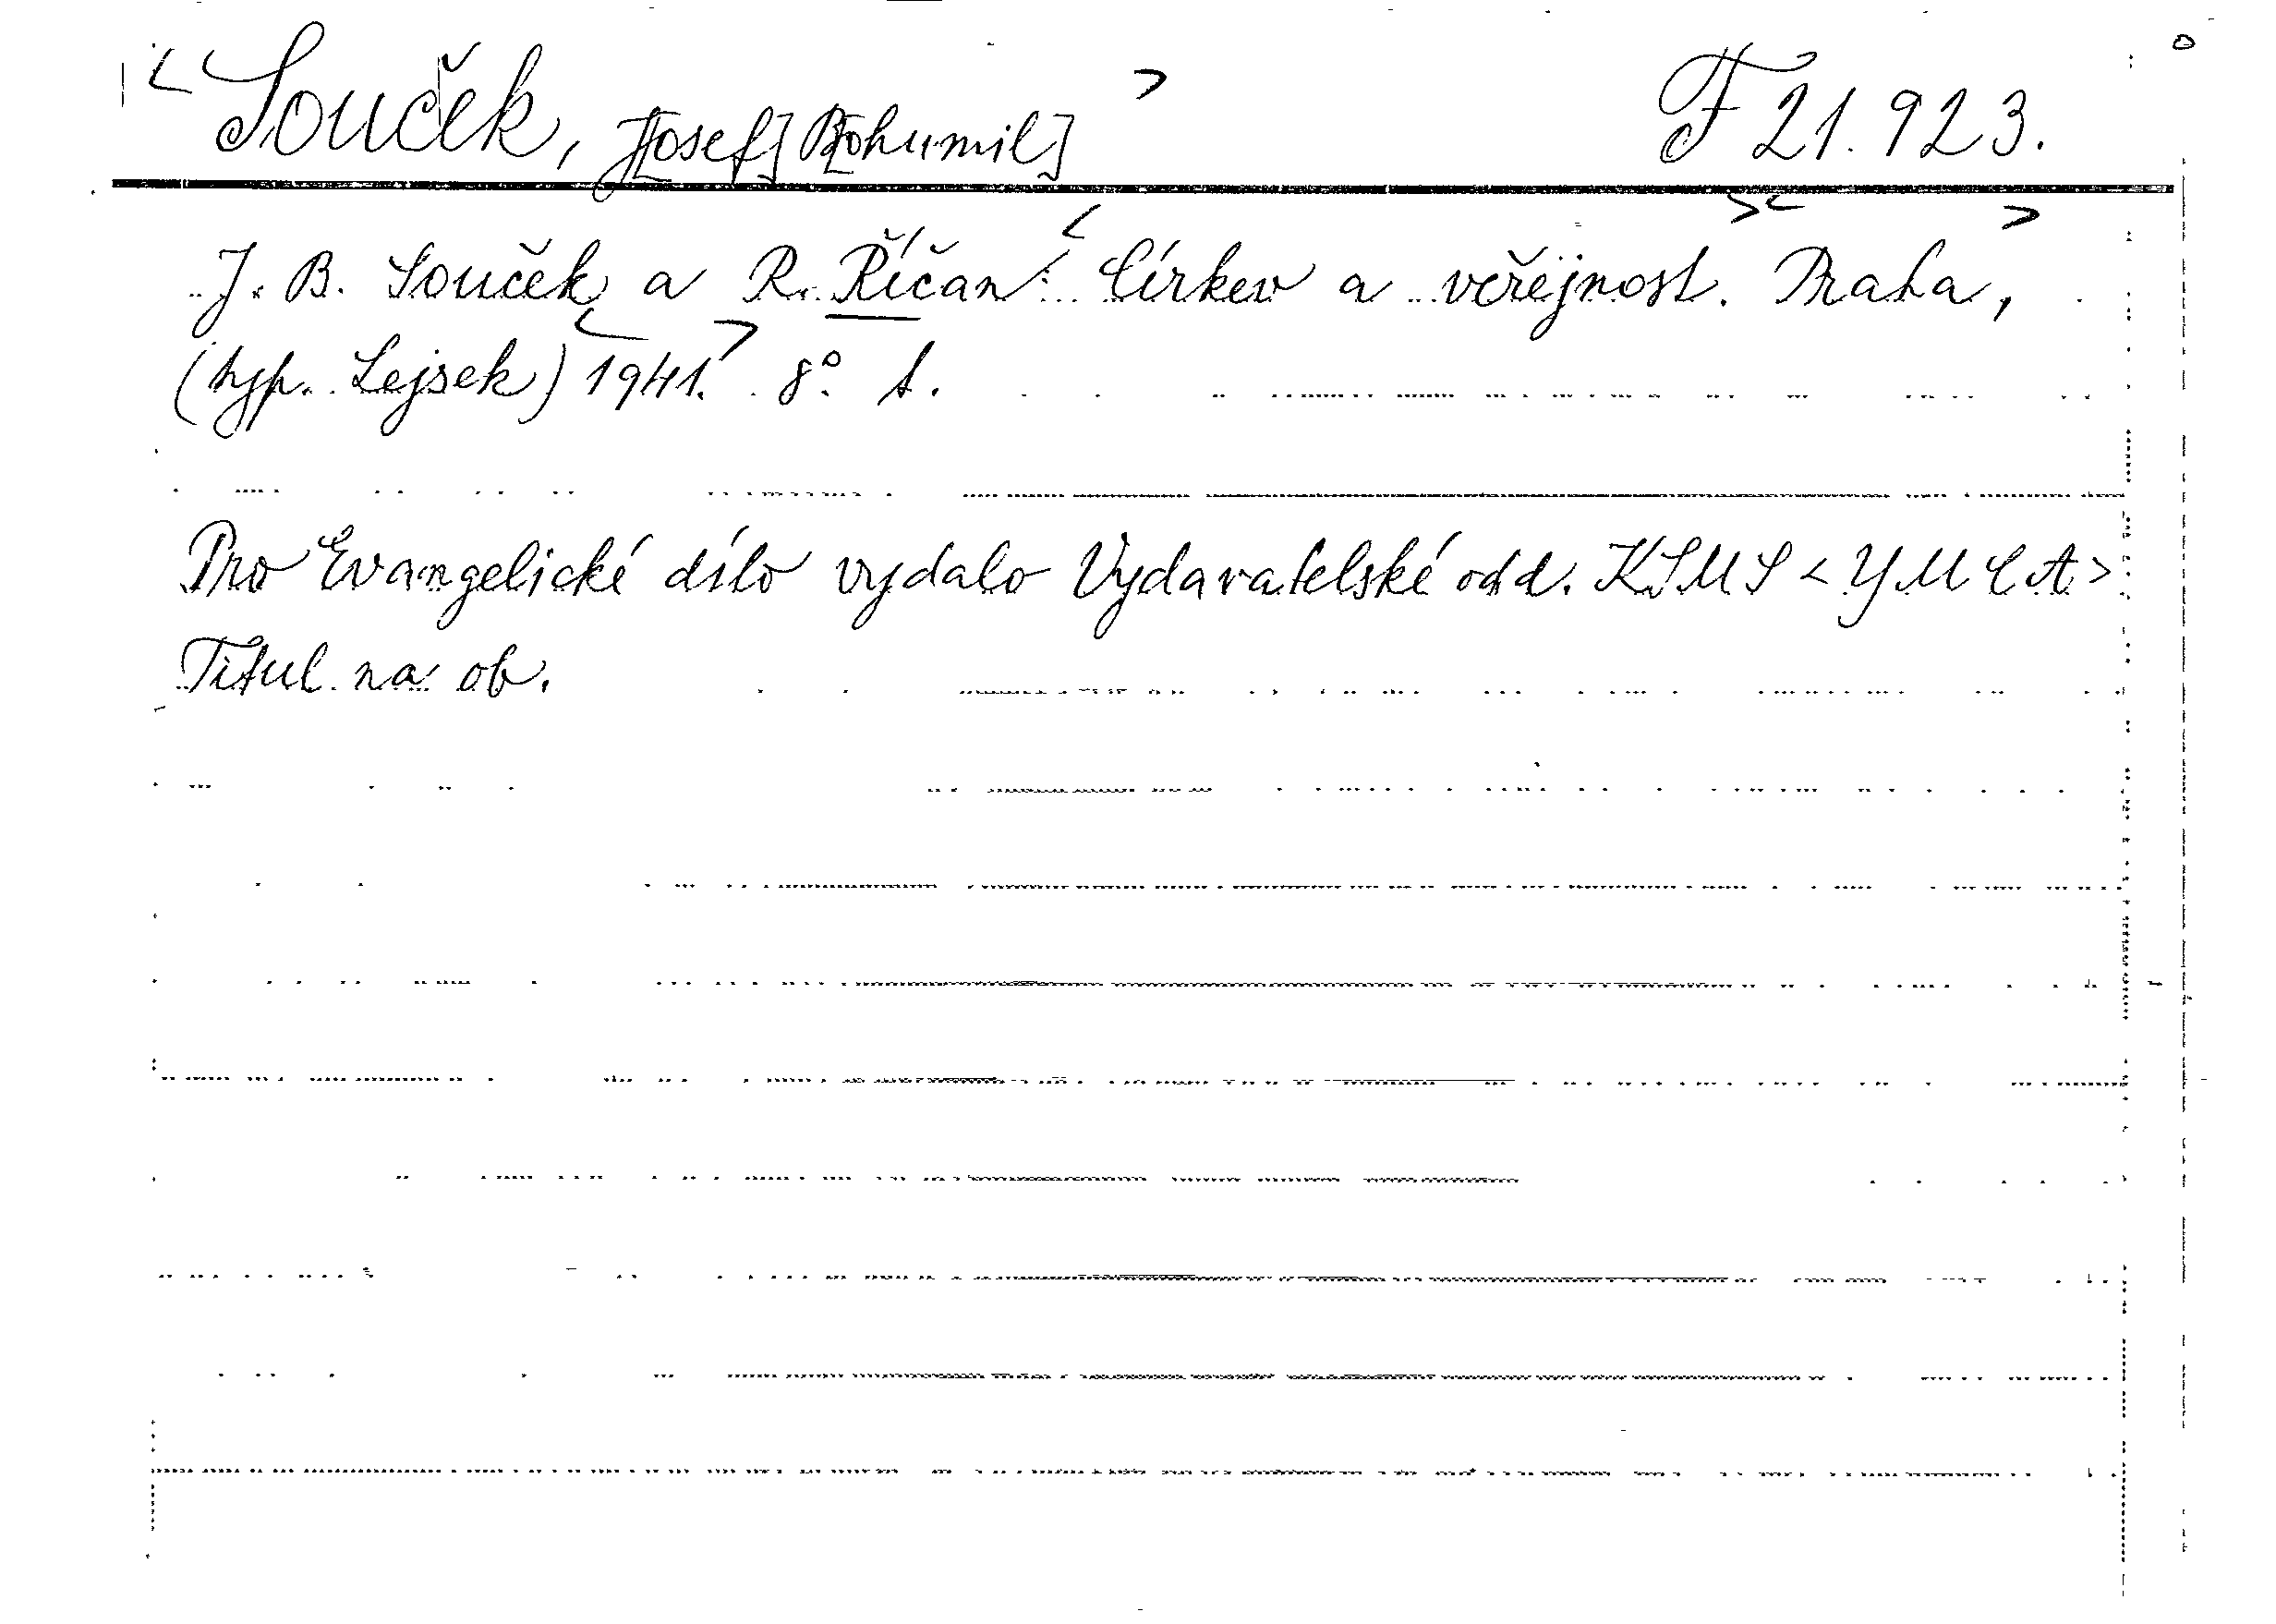 <Souček, J[osef] B[ohumil]> F 21.923.
J. B. Souček a R. Říčan: <Církev a veřejnost.> <Praha,>
(typ. Lejsek) <1941.> 8°. 1.
Pro Evangelické dílo vydalo Vydavatelské odd. KSMS <YMCA>
Titul na ob.